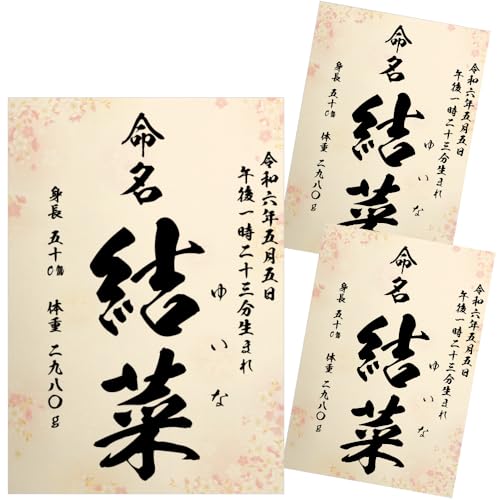 令和六年五月五日
午後一時二十三分生まれ
命名
結菜
ゆいな
身長 五十㎝ 体重 二九八〇g
令和六年五月五日
午後一時二十三分生まれ
命名
結菜
ゆいな
身長 五十㎝ 体重 二九八〇g
令和六年五月五日
午後一時二十三分生まれ
命名
結菜
ゆいな
身長 五十㎝ 体重 二九八〇g